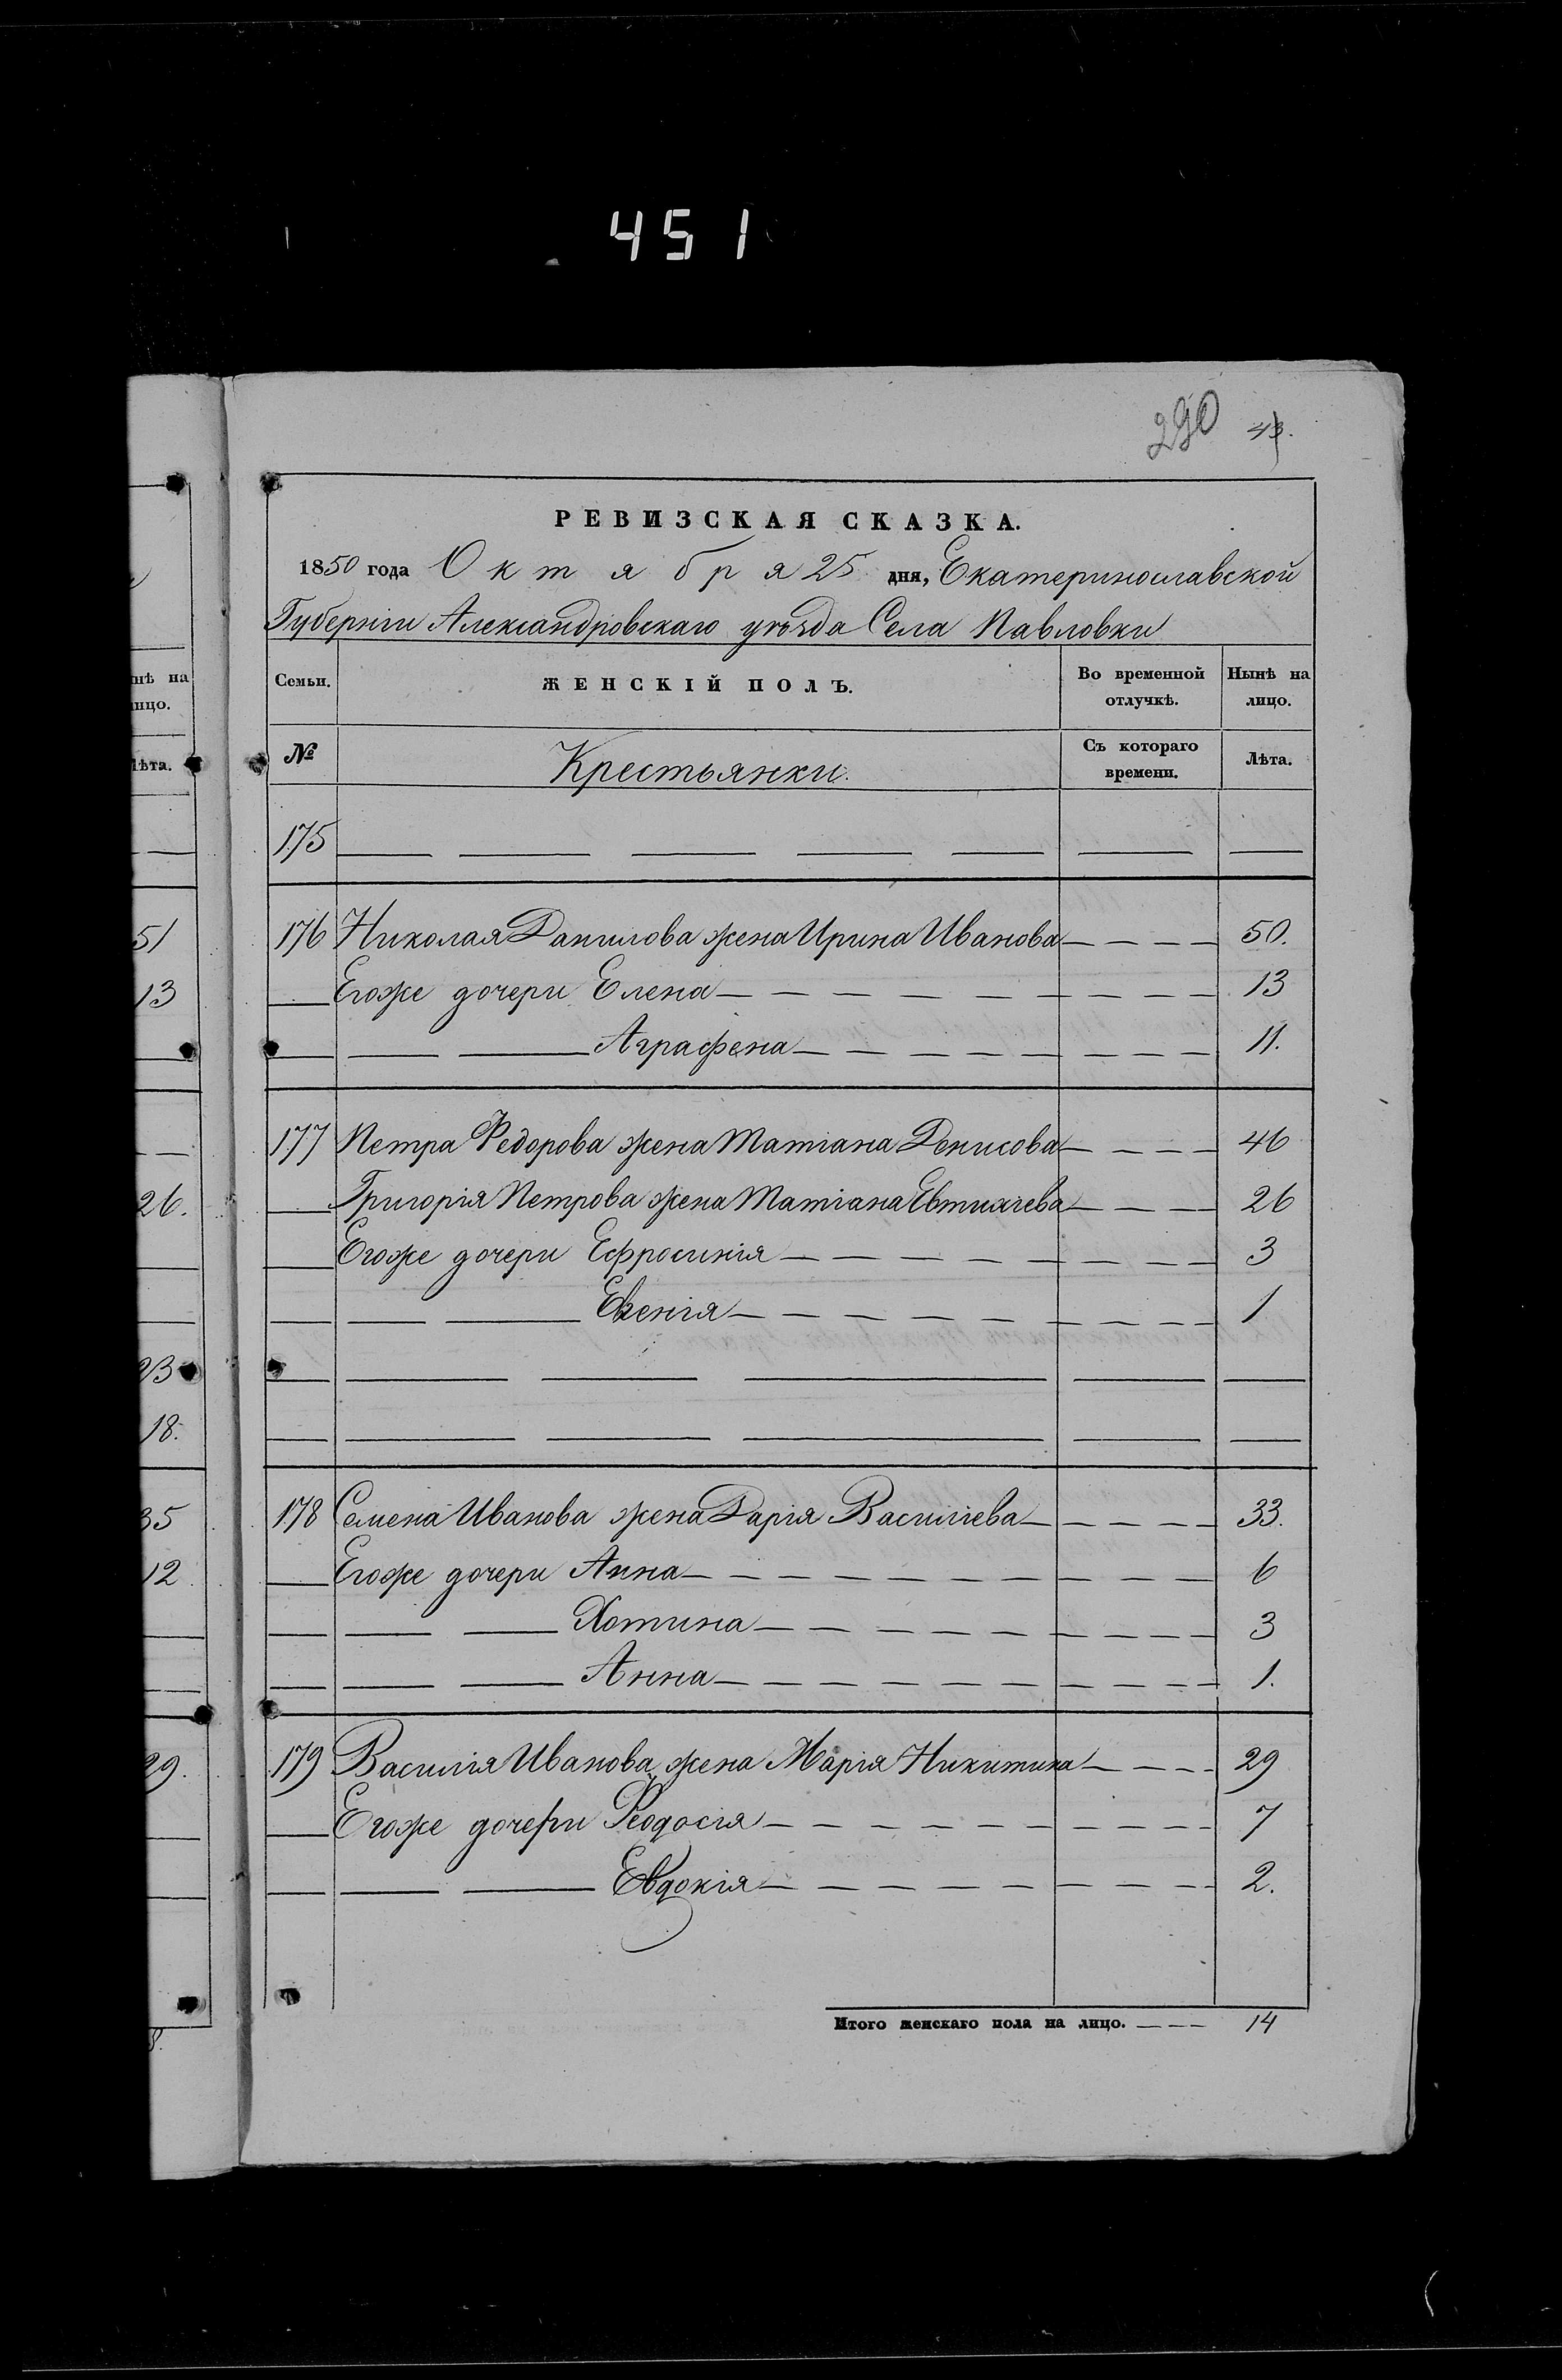 451
290 43.
РЕВИЗСКАЯ СКАЗКА.
1850 года Октября 25 дня, Екатеринославской
Губерніи Александровскаго уѣзда Села Павловки
Семьи. ЖЕНСКІЙ ПОЛЪ. Во временной отлучкѣ. Нынѣ на лицо.
№ Крестьянки. Съ котораго времени. Лѣта.
175
176 Николая Данилова жена Ирина Иванова 50.
Егоже дочери Елена 13
Аграфена 11.
177 Петра Федорова жена Матіана Денисова 46
Григорія Петрова жена Матіана Евтихіева 26
Егоже дочери Ефросинія 3
Евгенія 1
178 Семена Иванова жена Дарія Василіева 33.
Егоже дочери Анна 6
Хотина 3
Анна 1.
179 Василія Иванова жена Марія Никитина 29
Егоже дочери Феодосія 7
Евдокія 2.
Итого женскаго пола на лицо. 14
нѣ на
ицо.
Лѣта.
51
13
26.
23
18.
35
12
29.
8.